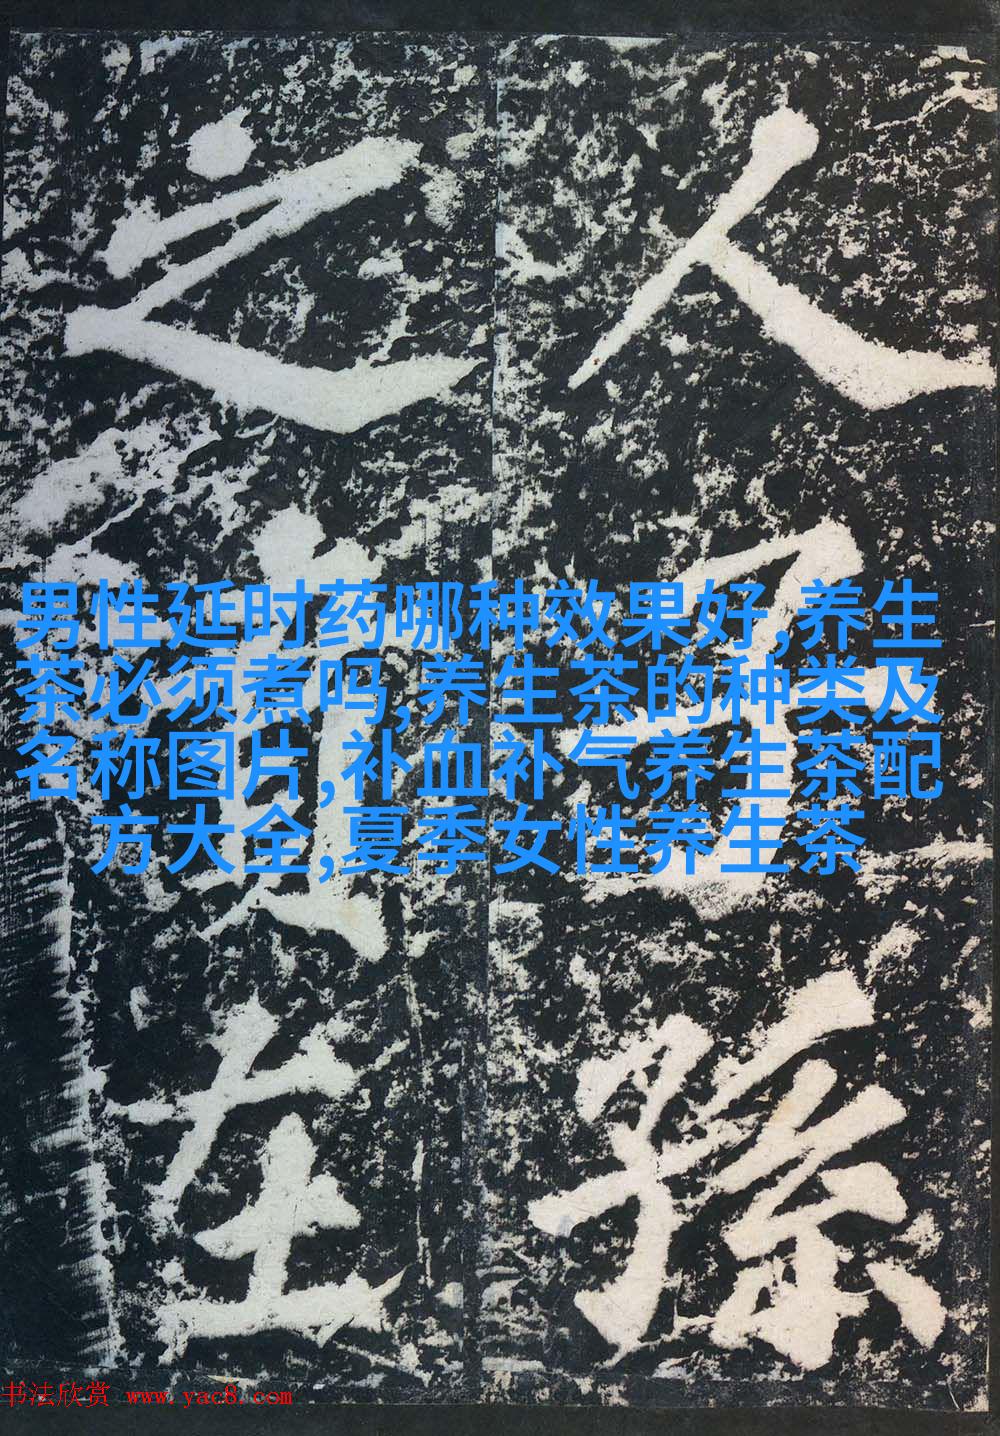 男性延时药哪种效果好,养生
茶必须煮吗,养生茶的种类及
名称图片,补血补气养生茶配
方大全,夏季女性养生茶
人
孫
之
在
书法欣赏 www.yac8.com